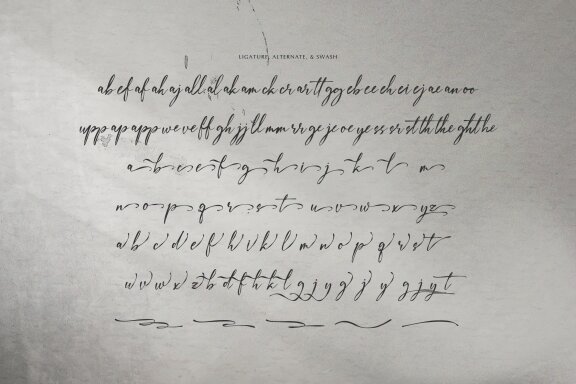 LIGATURE, ALTERNATE, & SWASH
ab ef af ah aj all al ak am ck cr ar tt gg cb ee ch ci cj ae an oo
upp ap app we ve ff gh jj ll mm rr ge je oe ye ss sr st th the ght he
a b c e f g h i j k l m
n o p q r s t u v w x y z
a b c d e f h i k l m n o p q r s t
u v w x z b d f h k l g j y g j y g j y t